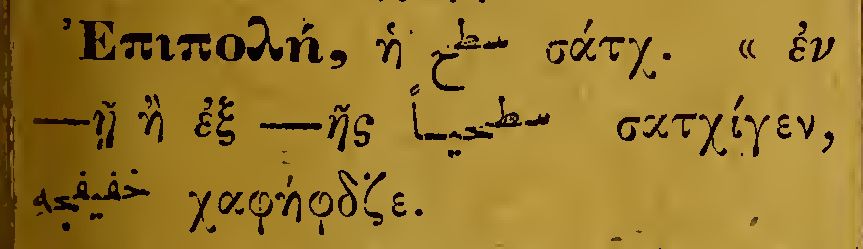 Ἐπιπολή, ἡ سطح σάτχ. « ἐν
—ῇ ἢ ἐξ —ῆς سطحياً σατχίγεν,
خفيفجه χαφήφδζε.